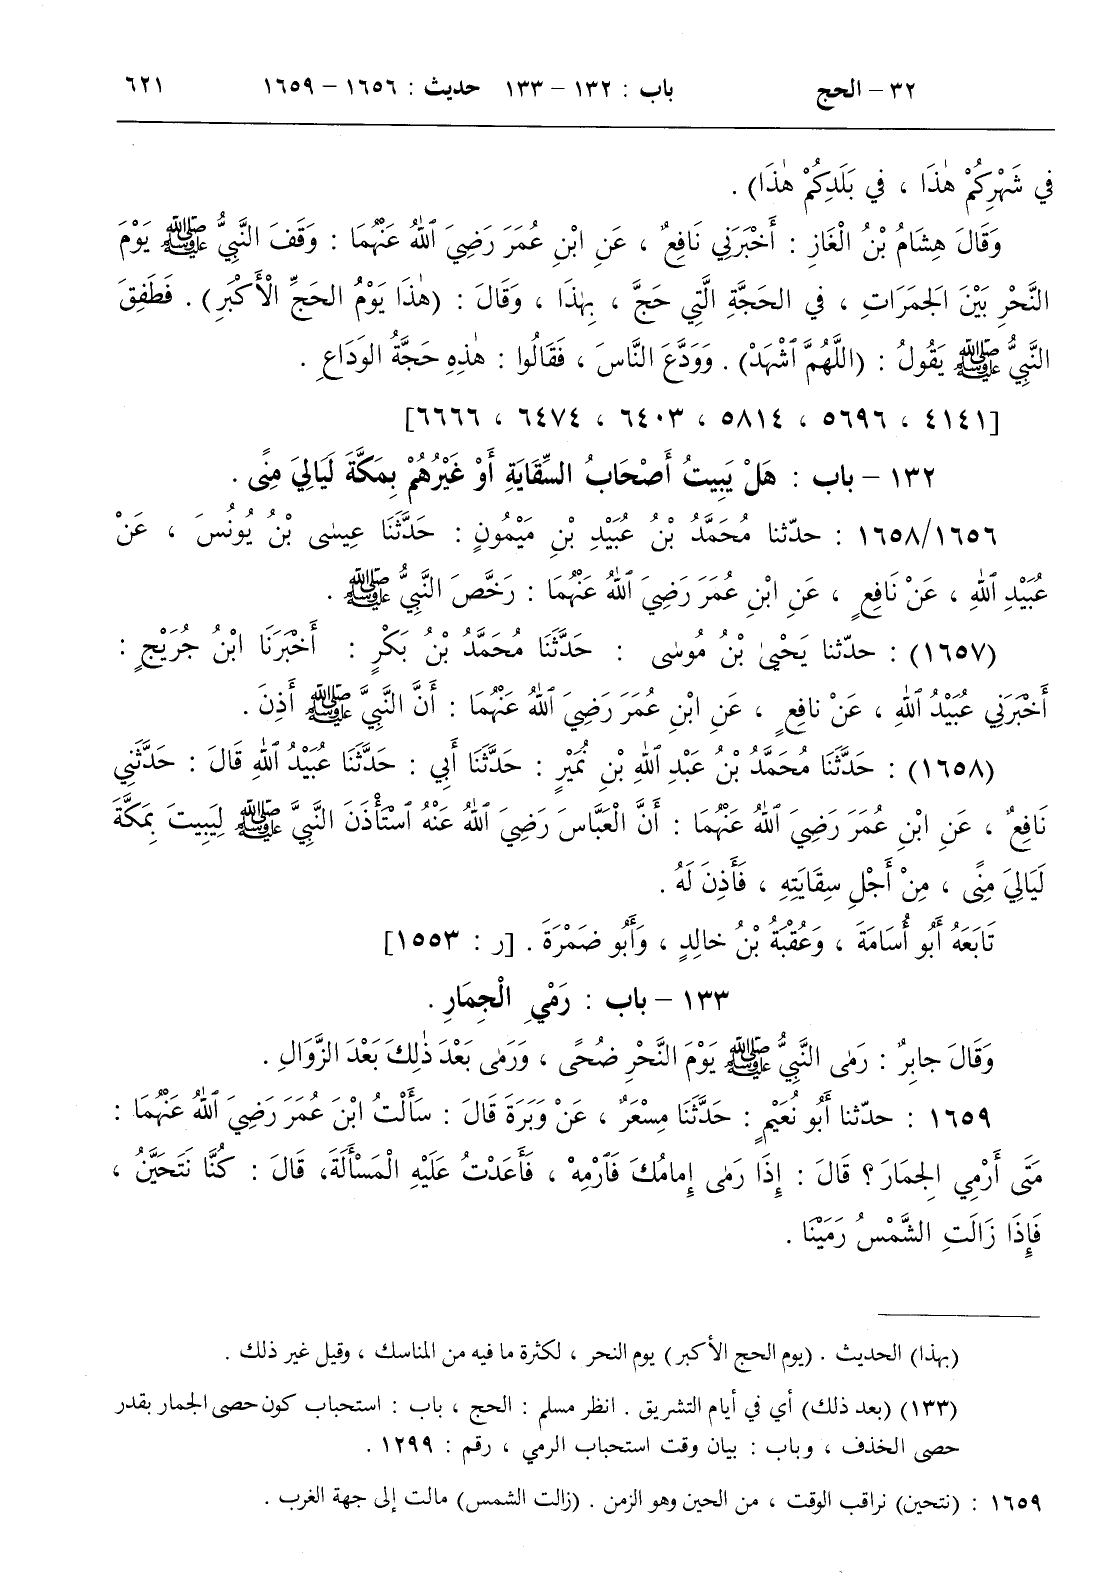 ٣٢ – الحج باب : ١٣٢ – ١٣٣ حديث : ١٦٥٦ – ١٦٥٩ ٦٢١
في شَهْرِكُمْ هٰذَا ، في بَلَدِكُمْ هٰذَا) .
وَقَالَ هِشَامُ بْنُ الْغَازِ : أَخْبَرَنِي نَافِعٌ ، عَنِ ابْنِ عُمَرَ رَضِيَ ٱللهُ عَنْهُمَا : وَقَفَ النَّبِيُّ ﷺ يَوْمَ
النَّحْرِ بَيْنَ الجَمَرَاتِ ، في الحَجَّةِ الَّتِي حَجَّ ، بِهٰذَا ، وَقَالَ : (هٰذَا يَوْمُ الحَجِّ الْأَكْبَرِ) . فَطَفِقَ
النَّبِيُّ ﷺ يَقُولُ : (اللَّهُمَّ ٱشْهَدْ) . وَوَدَّعَ النَّاسَ ، فَقَالُوا : هٰذِهِ حَجَّةُ الوَدَاعِ .
[٤١٤١ ، ٥٦٩٦ ، ٥٨١٤ ، ٦٤٠٣ ، ٦٤٧٤ ، ٦٦٦٦]
١٣٢ – باب : هَلْ يَبِيتُ أَصْحَابُ السِّقَايَةِ أَوْ غَيْرُهُمْ بِمَكَّةَ لَيَالِيَ مِنًى .
١٦٥٨/١٦٥٦ : حدّثنا مُحَمَّدُ بْنُ عُبَيْدِ بْنِ مَيْمُونٍ : حَدَّثَنَا عِيسٰى بْنُ يُونُسَ ، عَنْ
عُبَيْدِ ٱللهِ ، عَنْ نَافِعٍ ، عَنِ ابْنِ عُمَرَ رَضِيَ ٱللهُ عَنْهُمَا : رَخَّصَ النَّبِيُّ ﷺ .
(١٦٥٧) : حدّثنا يَحْيىٰ بْنُ مُوسٰى : حَدَّثَنَا مُحَمَّدُ بْنُ بَكْرٍ : أَخْبَرَنَا ابْنُ جُرَيْجٍ :
أَخْبَرَنِي عُبَيْدُ ٱللهِ ، عَنْ نافِعٍ ، عَنِ ابْنِ عُمَرَ رَضِيَ ٱللهُ عَنْهُمَا : أَنَّ النَّبِيَّ ﷺ أَذِنَ .
(١٦٥٨) : حَدَّثَنَا مُحَمَّدُ بْنُ عَبْدِ ٱللهِ بْنِ نُمَيْرٍ : حَدَّثَنَا أَبِي : حَدَّثَنَا عُبَيْدُ ٱللهِ قَالَ : حَدَّثَنِي
نَافِعٌ ، عَنِ ابْنِ عُمَرَ رَضِيَ ٱللهُ عَنْهُمَا : أَنَّ الْعَبَّاسَ رَضِيَ ٱللهُ عَنْهُ ٱسْتَأْذَنَ النَّبِيَّ ﷺ لِيَبِيتَ بِمَكَّةَ
لَيَالِيَ مِنًى ، مِنْ أَجْلِ سِقَايَتِهِ ، فَأَذِنَ لَهُ .
تَابَعَهُ أَبُو أُسَامَةَ ، وَعُقْبَةُ بْنُ خالِدٍ ، وَأَبُو ضَمْرَةَ . [ر : ١٥٥٣]
١٣٣ – باب : رَمْيِ الْجِمَارِ .
وَقَالَ جابِرٌ : رَمٰى النَّبِيُّ ﷺ يَوْمَ النَّحْرِ ضُحًى ، وَرَمٰى بَعْدَ ذٰلِكَ بَعْدَ الزَّوَالِ .
١٦٥٩ : حدّثنا أَبُو نُعَيْمٍ : حَدَّثَنَا مِسْعَرٌ ، عَنْ وَبَرَةَ قَالَ : سَأَلْتُ ابْنَ عُمَرَ رَضِيَ ٱللهُ عَنْهُمَا :
مَتَى أَرْمِي الجِمَارَ ؟ قَالَ : إِذَا رَمٰى إِمامُكَ فَٱرْمِهْ ، فَأَعَدْتُ عَلَيْهِ الْمَسْأَلَةَ، قَالَ : كُنَّا نَتَحَيَّنُ ،
فَإِذَا زَالَتِ الشَّمْسُ رَمَيْنَا .
(بهذا) الحديث . (يوم الحج الأكبر) يوم النحر ، لكثرة ما فيه من المناسك ، وقيل غير ذلك .
(١٣٣) (بعد ذلك) أي في أيام التشريق . انظر مسلم : الحج ، باب : استحباب كون حصى الجمار بقدر
حصى الخذف ، وباب : بيان وقت استحباب الرمي ، رقم : ١٢٩٩ .
١٦٥٩ : (نتحين) نراقب الوقت ، من الحين وهو الزمن . (زالت الشمس) مالت إلى جهة الغرب .